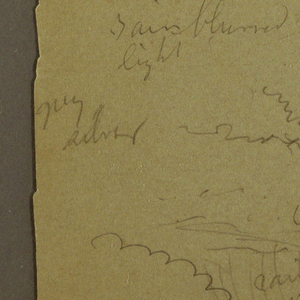 rain blurred
light
grey
silver